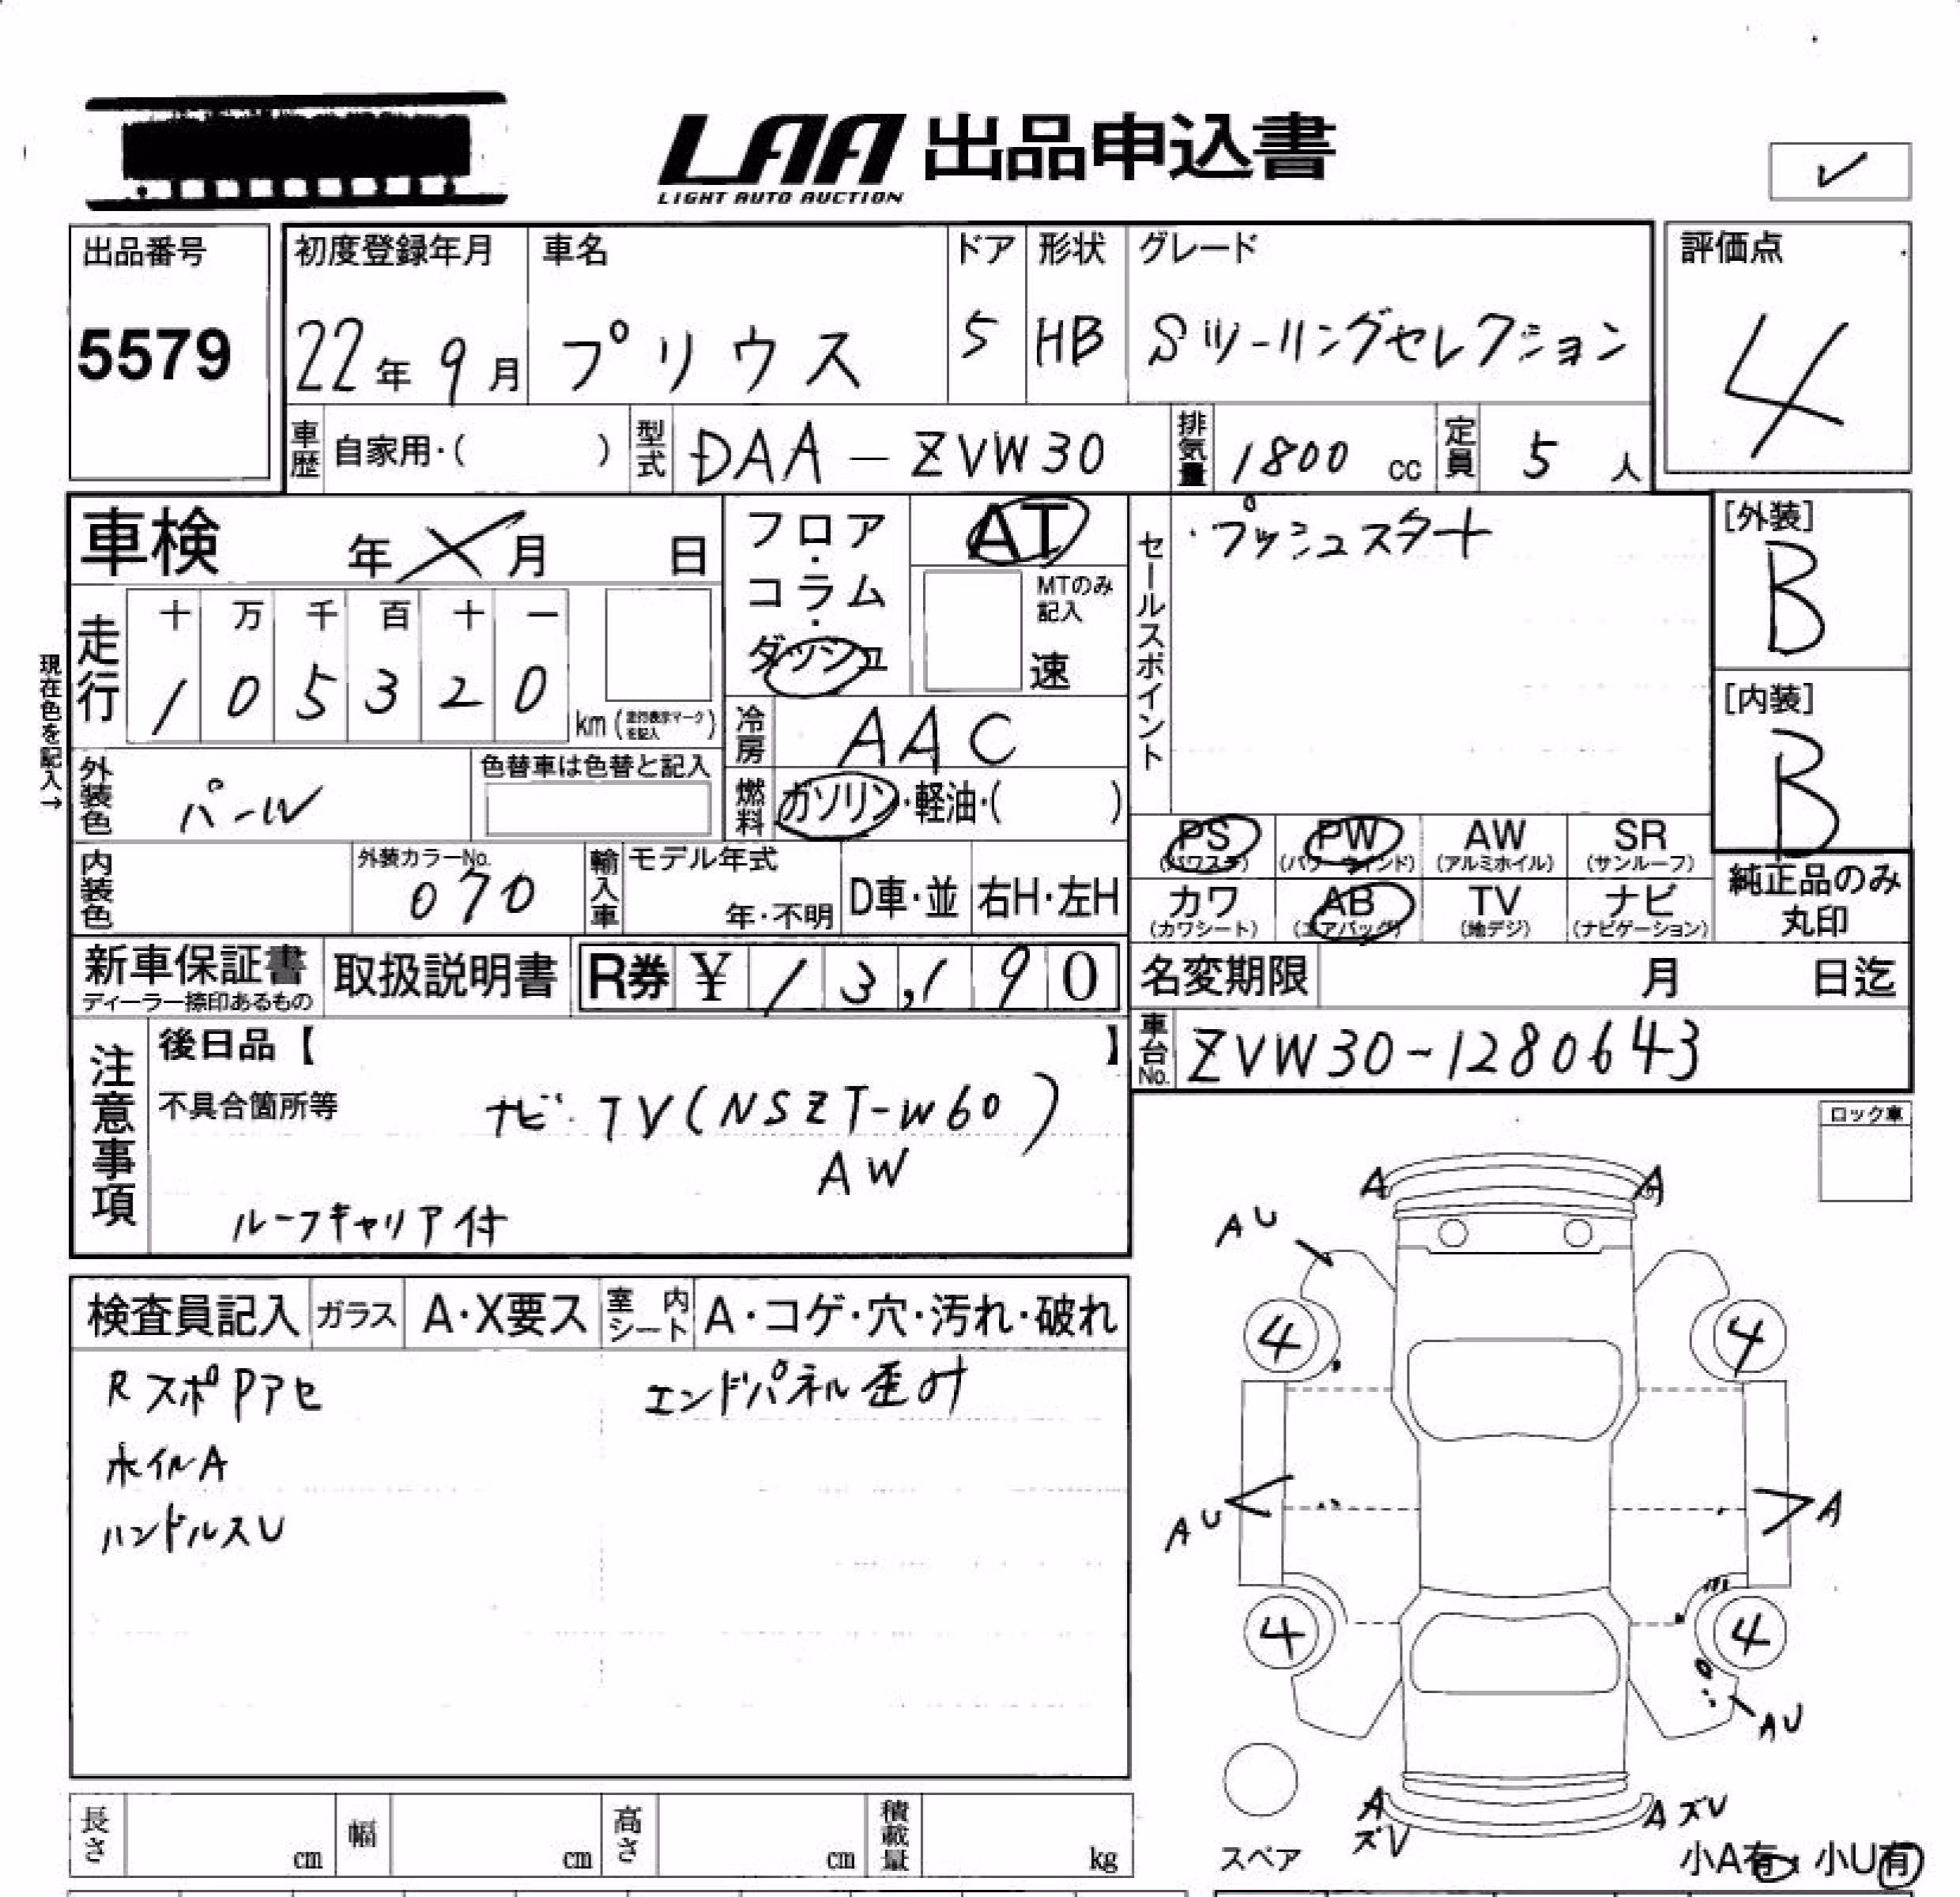 LAA 出品申込書
LIGHT AUTO AUCTION
✓
出品番号
5579
初度登録年月
22年 9月
車名
プリウス
ドア
5
形状
HB
グレード
Sツーリングセレクション
評価点
4
車歴 自家用・( )
型式 DAA-ZVW30
排気量 1800 cc
定員 5 人
車検 年 ╳ 月 日
フロア・コラム・ダッシュ
AT
MTのみ記入
速
セールスポイント
・プッシュスタート
[外装]
B
[内装]
B
現在色を記入→
走行
十 万 千 百 十 一
1 0 5 3 2 0
km (走行表示マークを記入)
冷房 AAC
外装色 パール
色替車は色替と記入
燃料 ガソリン・軽油・( )
PS (パワステ)
PW (パワーウィンド)
AW (アルミホイル)
SR (サンルーフ)
内装色
外装カラーNo.
070
輸入車
モデル年式
年・不明
D車・並
右H・左H
カワ (カワシート)
AB (エアバッグ)
TV (地デジ)
ナビ (ナビゲーション)
純正品のみ
丸印
新車保証書
ディーラー捺印あるもの
取扱説明書
R券 ¥ 13,190
名変期限 月 日迄
車台No. ZVW30-1280643
注意事項
後日品【 】
不具合箇所等
ナビ・TV(NSZT-W60)
AW
ルーフキャリア付
ロック車
検査員記入
ガラス
A・X要ス
室内シート
A・コゲ・穴・汚れ・破れ
RスポPアセ
エンドパネル歪み
ホイルA
ハンドルスU
A
A
AU
4
4
AU
A
4
4
AU
A
ズV
AズV
スペア
小A有・小U有
長さ cm
幅 cm
高さ cm
積載量 kg